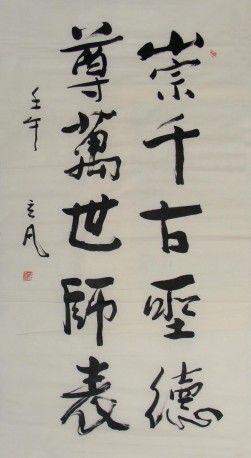 崇千古聖德
尊萬世師表
壬午 立凡